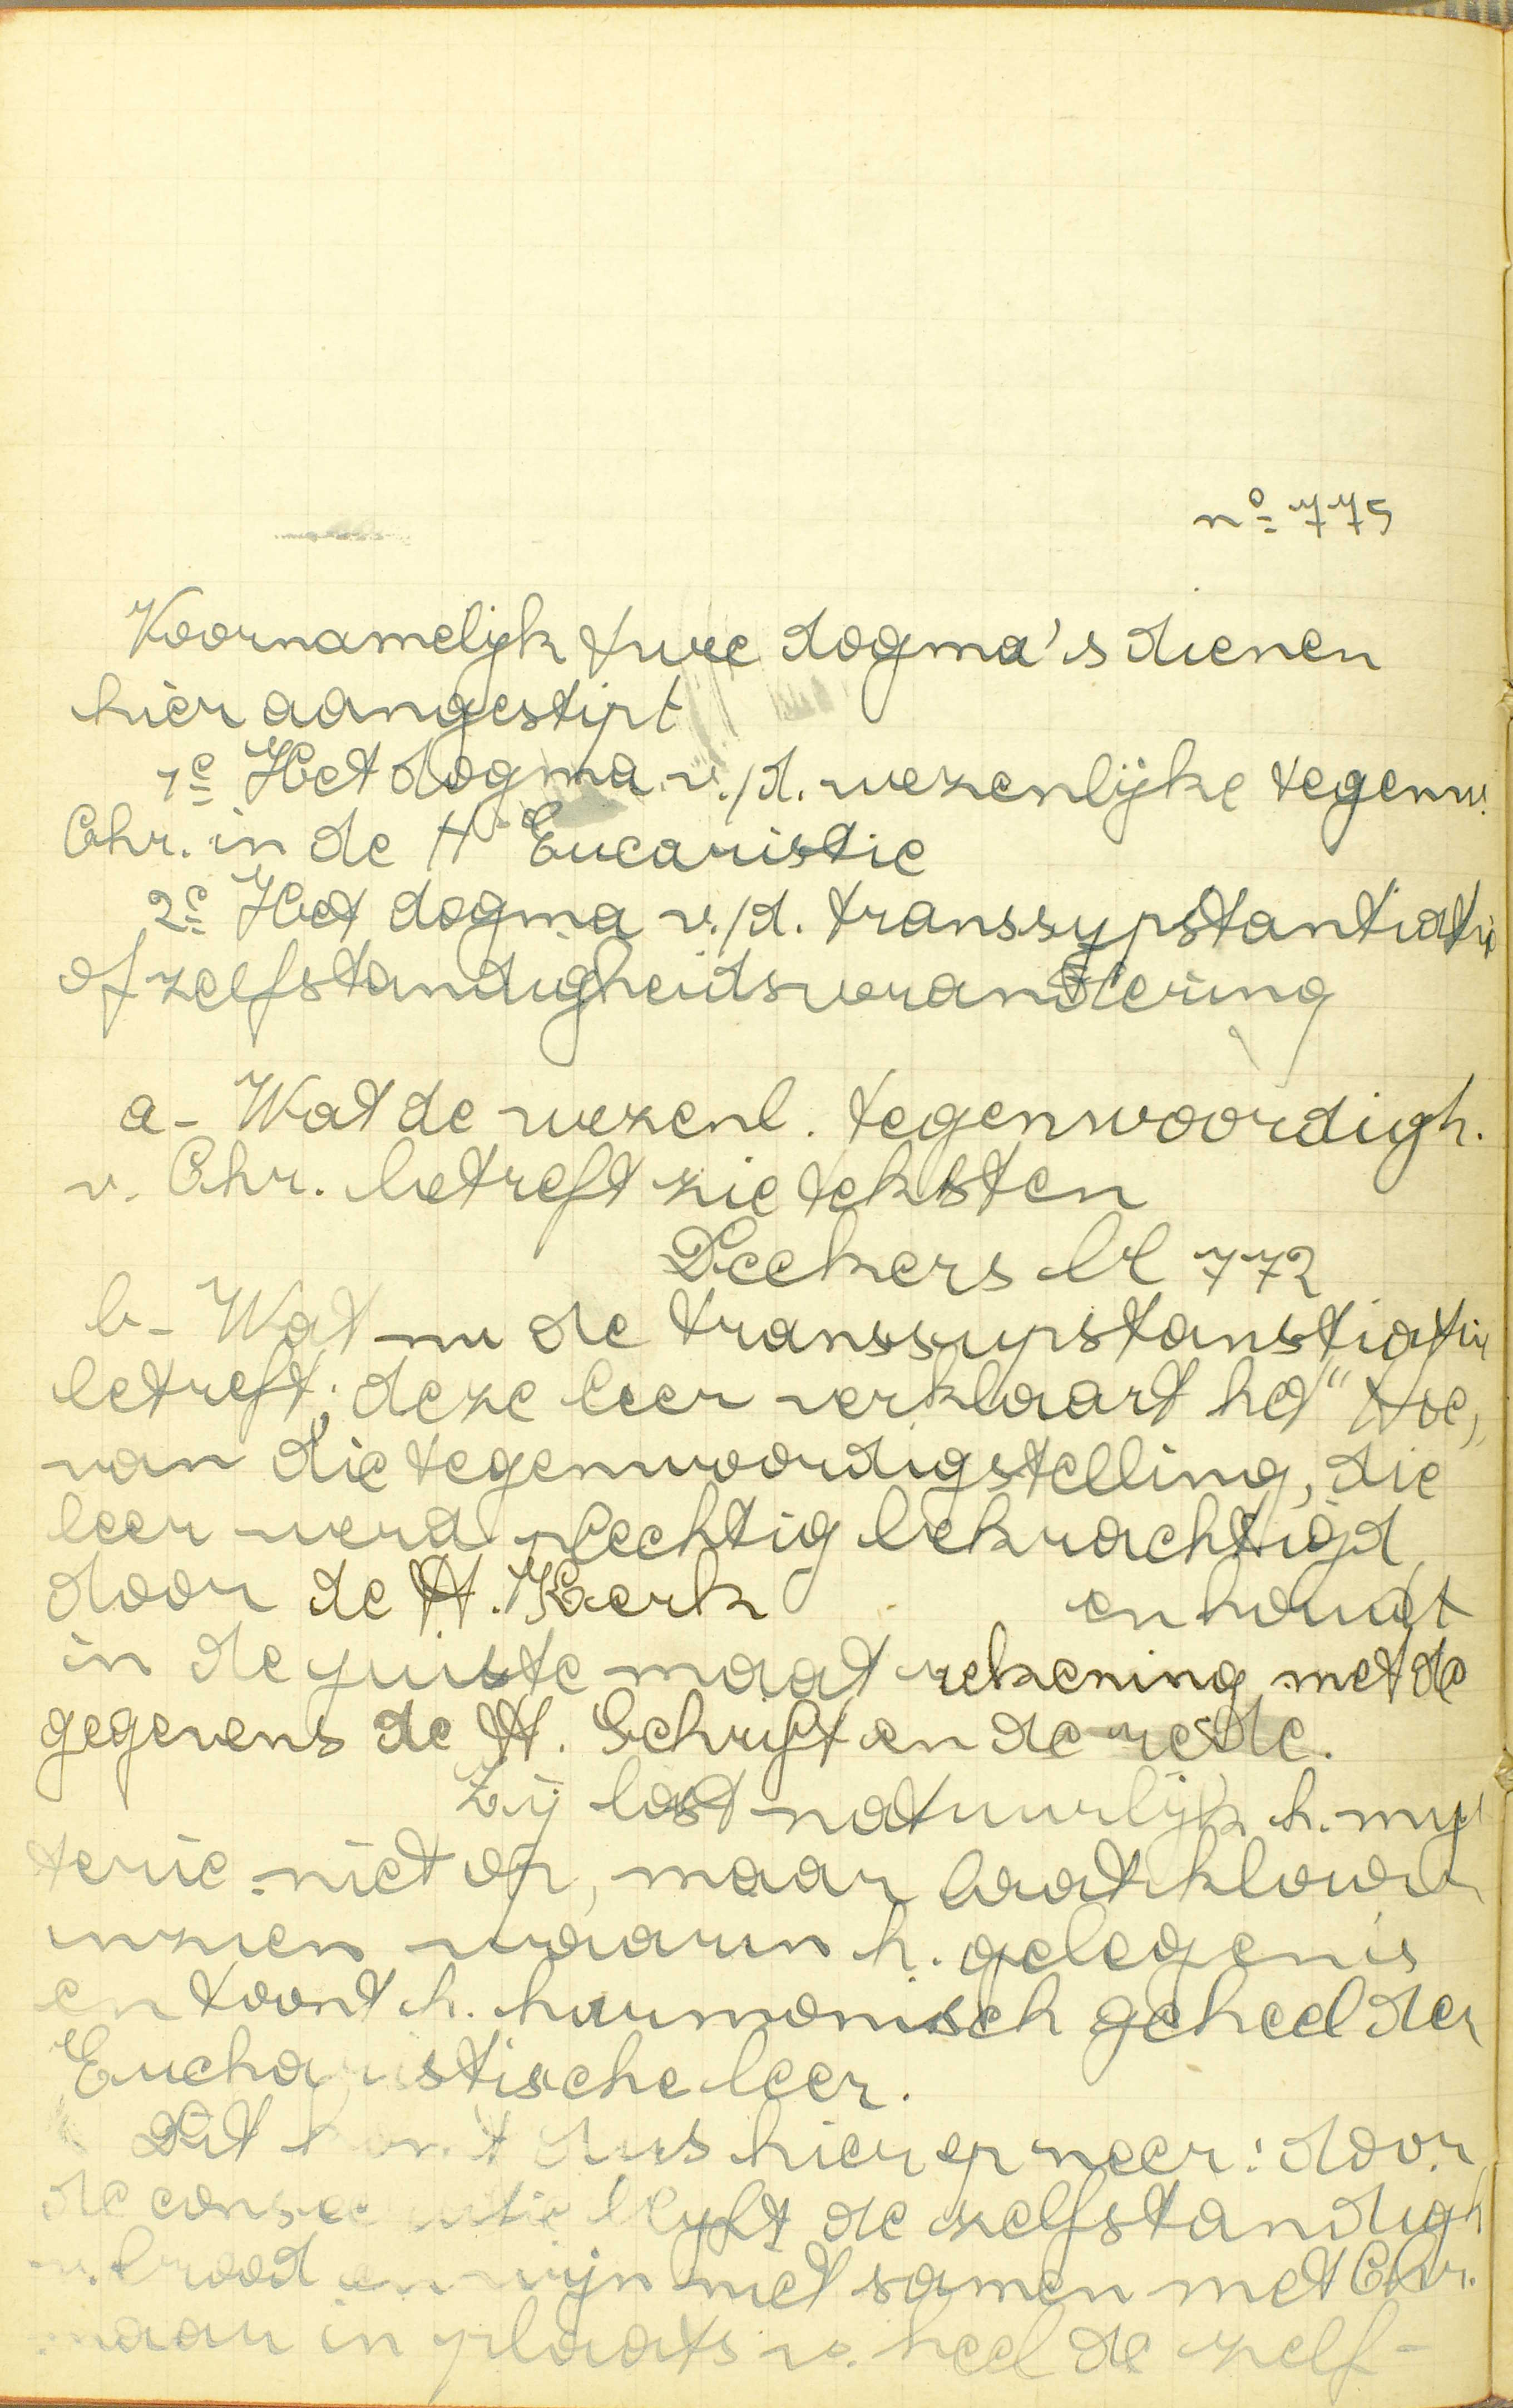 nº 775
Voornamelijk twee dogma's dienen
hier aangestipt
1e Het dogma v./d. wezenlijke tegenw.
Chr. in de H Eucaristie
2e Het dogma v./d. transsypstantiatie
of zelfstandigheidsverandering
a- Wat de wezenl. tegenwoordigh.
v. Chr. betreft zie teksten
Deckers bl 772
b- Wat nu de transsupstanstiatie
betreft; deze leer verklaart het "hoe"
van die tegenwoordigstelling, die
leer werd plechtig bekrachtigd
door de H. Kerk en houdt
in de juiste maat rekening met de
gegevens de H. Schrift en de rede.
Zij lost natuurlijk h. mys
terie niet op, maar laat klaar
inzien waarin h. gelegen is
en toont h. harmonisch geheel der
Eucharistische leer.
Dit komt dus hier op neer: door
de consecratie blijft de zelfstandigh
v. brood en wijn niet samen met Chr.
maar in plaats v. heel de zelf-